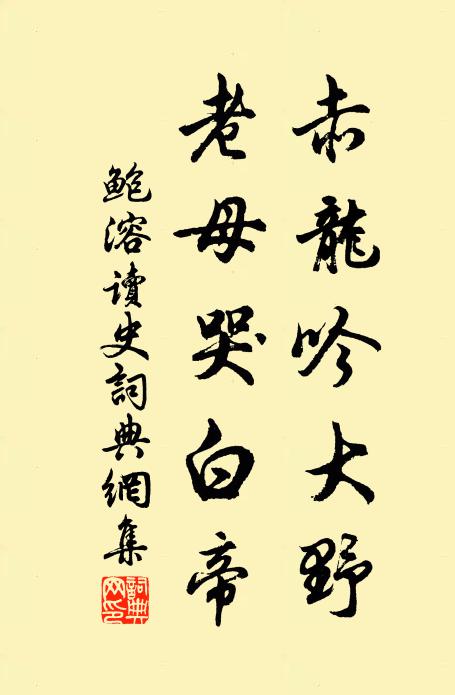 赤龍吟大野
老母哭白帝
鲍溶讀史詞典網集
詞典网印